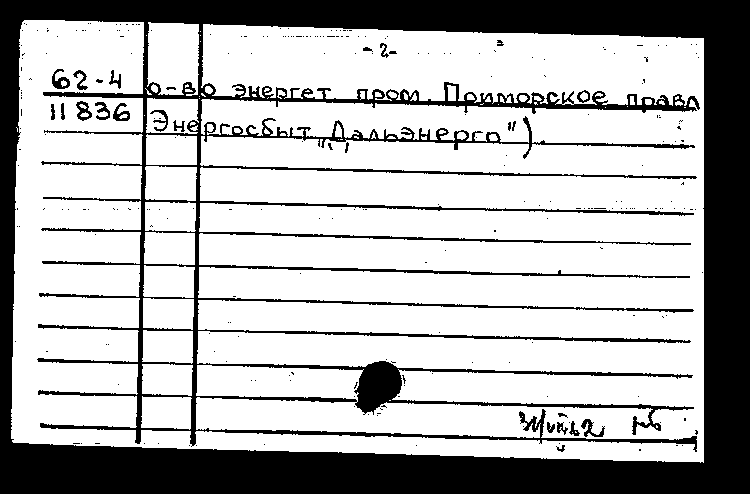 - 2 -
62-4 о-во энергет пром. Приморское правл
11 836 Энергосбыт „Дальэнерго").